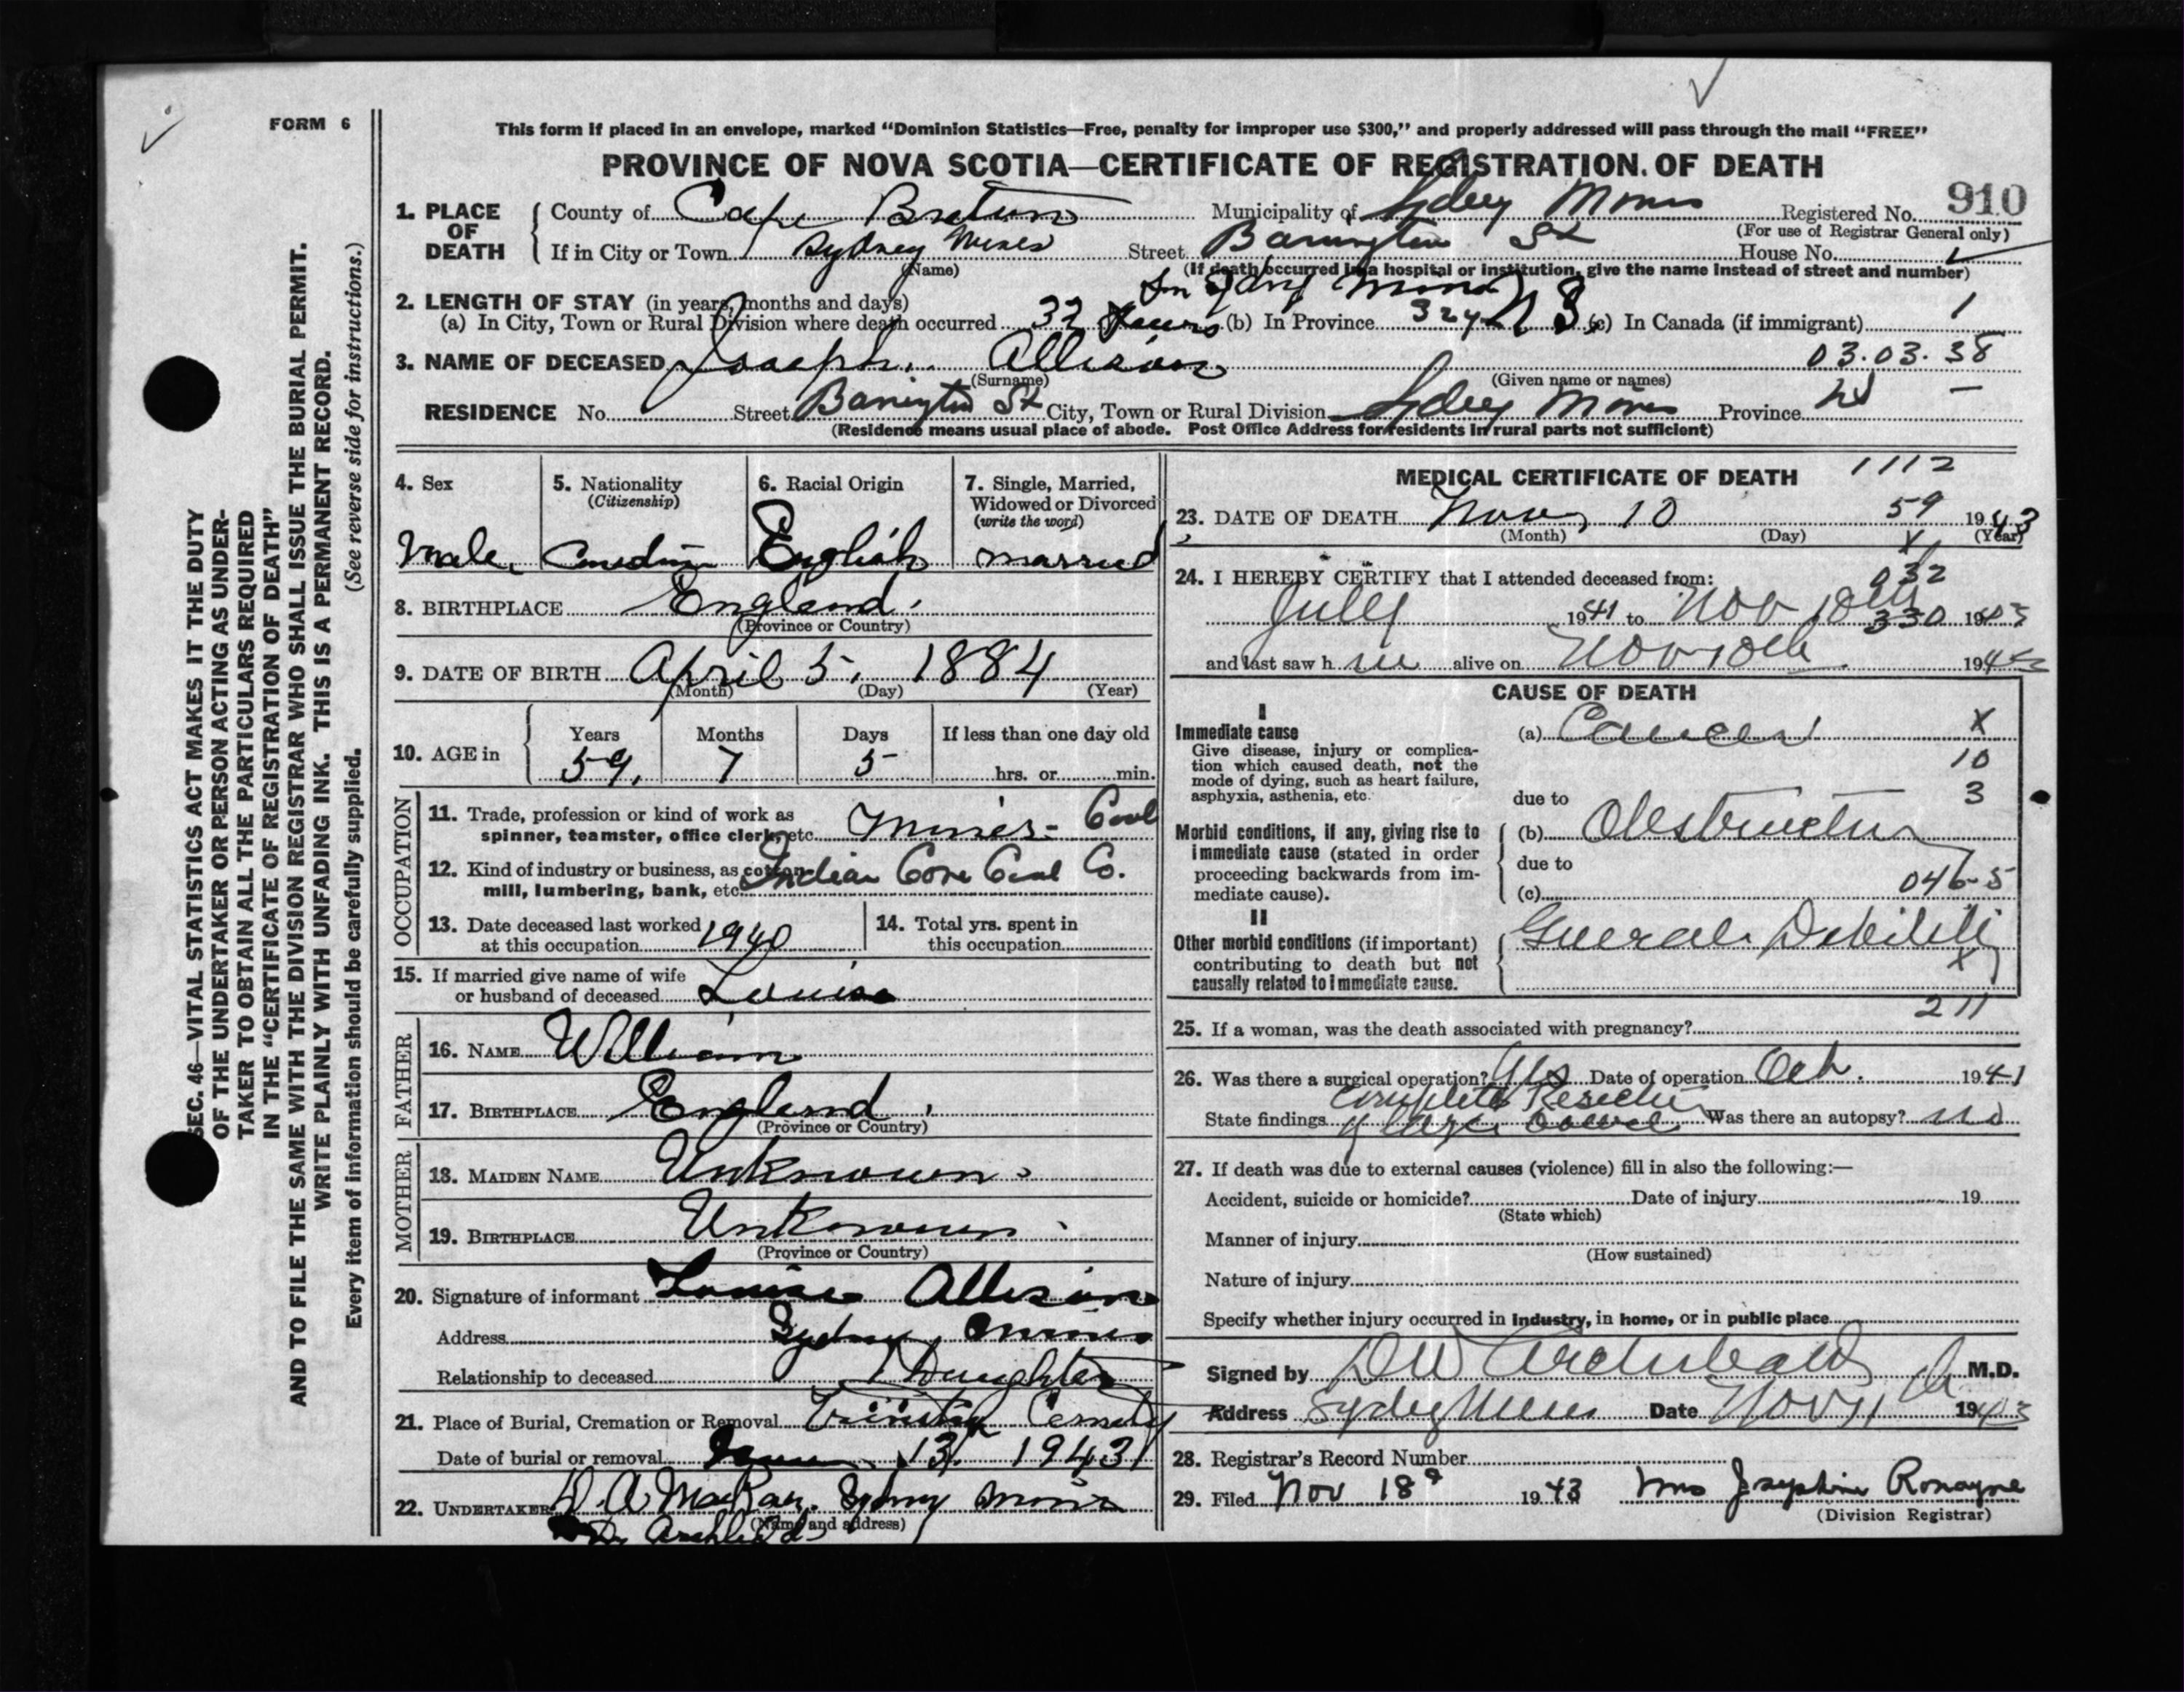 FORM 6
SEC. 46—VITAL STATISTICS ACT MAKES IT THE DUTY
OF THE UNDERTAKER OR PERSON ACTING AS UNDER-
TAKER TO OBTAIN ALL THE PARTICULARS REQUIRED
IN THE "CERTIFICATE OF REGISTRATION OF DEATH"
AND TO FILE THE SAME WITH THE DIVISION REGISTRAR WHO SHALL ISSUE THE BURIAL PERMIT.
WRITE PLAINLY WITH UNFADING INK. THIS IS A PERMANENT RECORD.
Every item of information should be carefully supplied. (See reverse side for instructions.)
This form if placed in an envelope, marked "Dominion Statistics—Free, penalty for improper use $300," and properly addressed will pass through the mail "FREE"
PROVINCE OF NOVA SCOTIA—CERTIFICATE OF REGISTRATION. OF DEATH
1. PLACE OF DEATH
County of Cape Breton Municipality of Sydney Mines Registered No. 910
(For use of Registrar General only)
If in City or Town Sydney Mines Street Barrington St House No.
(Name)
(If death occurred in a hospital or institution, give the name instead of street and number)
2. LENGTH OF STAY (in years, months and days) In Sydney Mines
(a) In City, Town or Rural Division where death occurred 32 years (b) In Province 32 y N S (c) In Canada (if immigrant) 1
3. NAME OF DECEASED Joseph Allison 03.03.38
(Surname) (Given name or names)
RESIDENCE No. Street Barrington St City, Town or Rural Division Sydney Mines Province NS —
(Residence means usual place of abode. Post Office Address for residents in rural parts not sufficient)
4. Sex
Male
5. Nationality
(Citizenship)
Canadian
6. Racial Origin
English
7. Single, Married,
Widowed or Divorced
(write the word)
married
8. BIRTHPLACE England
(Province or Country)
9. DATE OF BIRTH April 5, 1884
(Month) (Day) (Year)
10. AGE in
Years Months Days If less than one day old
59 7 5 hrs. or min.
OCCUPATION
11. Trade, profession or kind of work as
spinner, teamster, office clerk, etc. Miner - Coal
12. Kind of industry or business, as cotton
mill, lumbering, bank, etc. Indian Cove Coal Co.
13. Date deceased last worked
at this occupation 1940
14. Total yrs. spent in
this occupation
15. If married give name of wife
or husband of deceased Louise
FATHER
16. NAME William
17. BIRTHPLACE England
(Province or Country)
MOTHER
18. MAIDEN NAME Unknown
19. BIRTHPLACE Unknown
(Province or Country)
20. Signature of informant Louise Allison
Address Sydney Mines
Relationship to deceased Daughter
21. Place of Burial, Cremation or Removal Trinity Cemetery
Date of burial or removal Nov 13 1943
22. UNDERTAKER D. A. MacRae, Sydney Mines
(Name and address)
Dr Archibald
MEDICAL CERTIFICATE OF DEATH 1112
23. DATE OF DEATH Nov 10 59 1943
(Month) (Day) (Year)
24. I HEREBY CERTIFY that I attended deceased from: 032
July 1941 to Nov 10th 330 1943
and last saw h im alive on Nov 10th 1943
CAUSE OF DEATH
I
Immediate cause
Give disease, injury or complica-
tion which caused death, not the
mode of dying, such as heart failure,
asphyxia, asthenia, etc.
(a) Cancer X
10
3
due to
Morbid conditions, if any, giving rise to
immediate cause (stated in order
proceeding backwards from im-
mediate cause).
(b) Obstruction
due to
(c) 046-5
II
Other morbid conditions (if important)
contributing to death but not
causally related to immediate cause.
General Debility
X
211
25. If a woman, was the death associated with pregnancy?
26. Was there a surgical operation? Yes Date of operation Oct. 1941
State findings Complete Resection of large bowel Was there an autopsy? no
27. If death was due to external causes (violence) fill in also the following:—
Accident, suicide or homicide? Date of injury 19
(State which)
Manner of injury
(How sustained)
Nature of injury
Specify whether injury occurred in industry, in home, or in public place
Signed by DW Archibald M.D.
Address Sydney Mines Date Nov 11 1943
28. Registrar's Record Number
29. Filed Nov 18 1943 Mrs Josephine Ronayne
(Division Registrar)